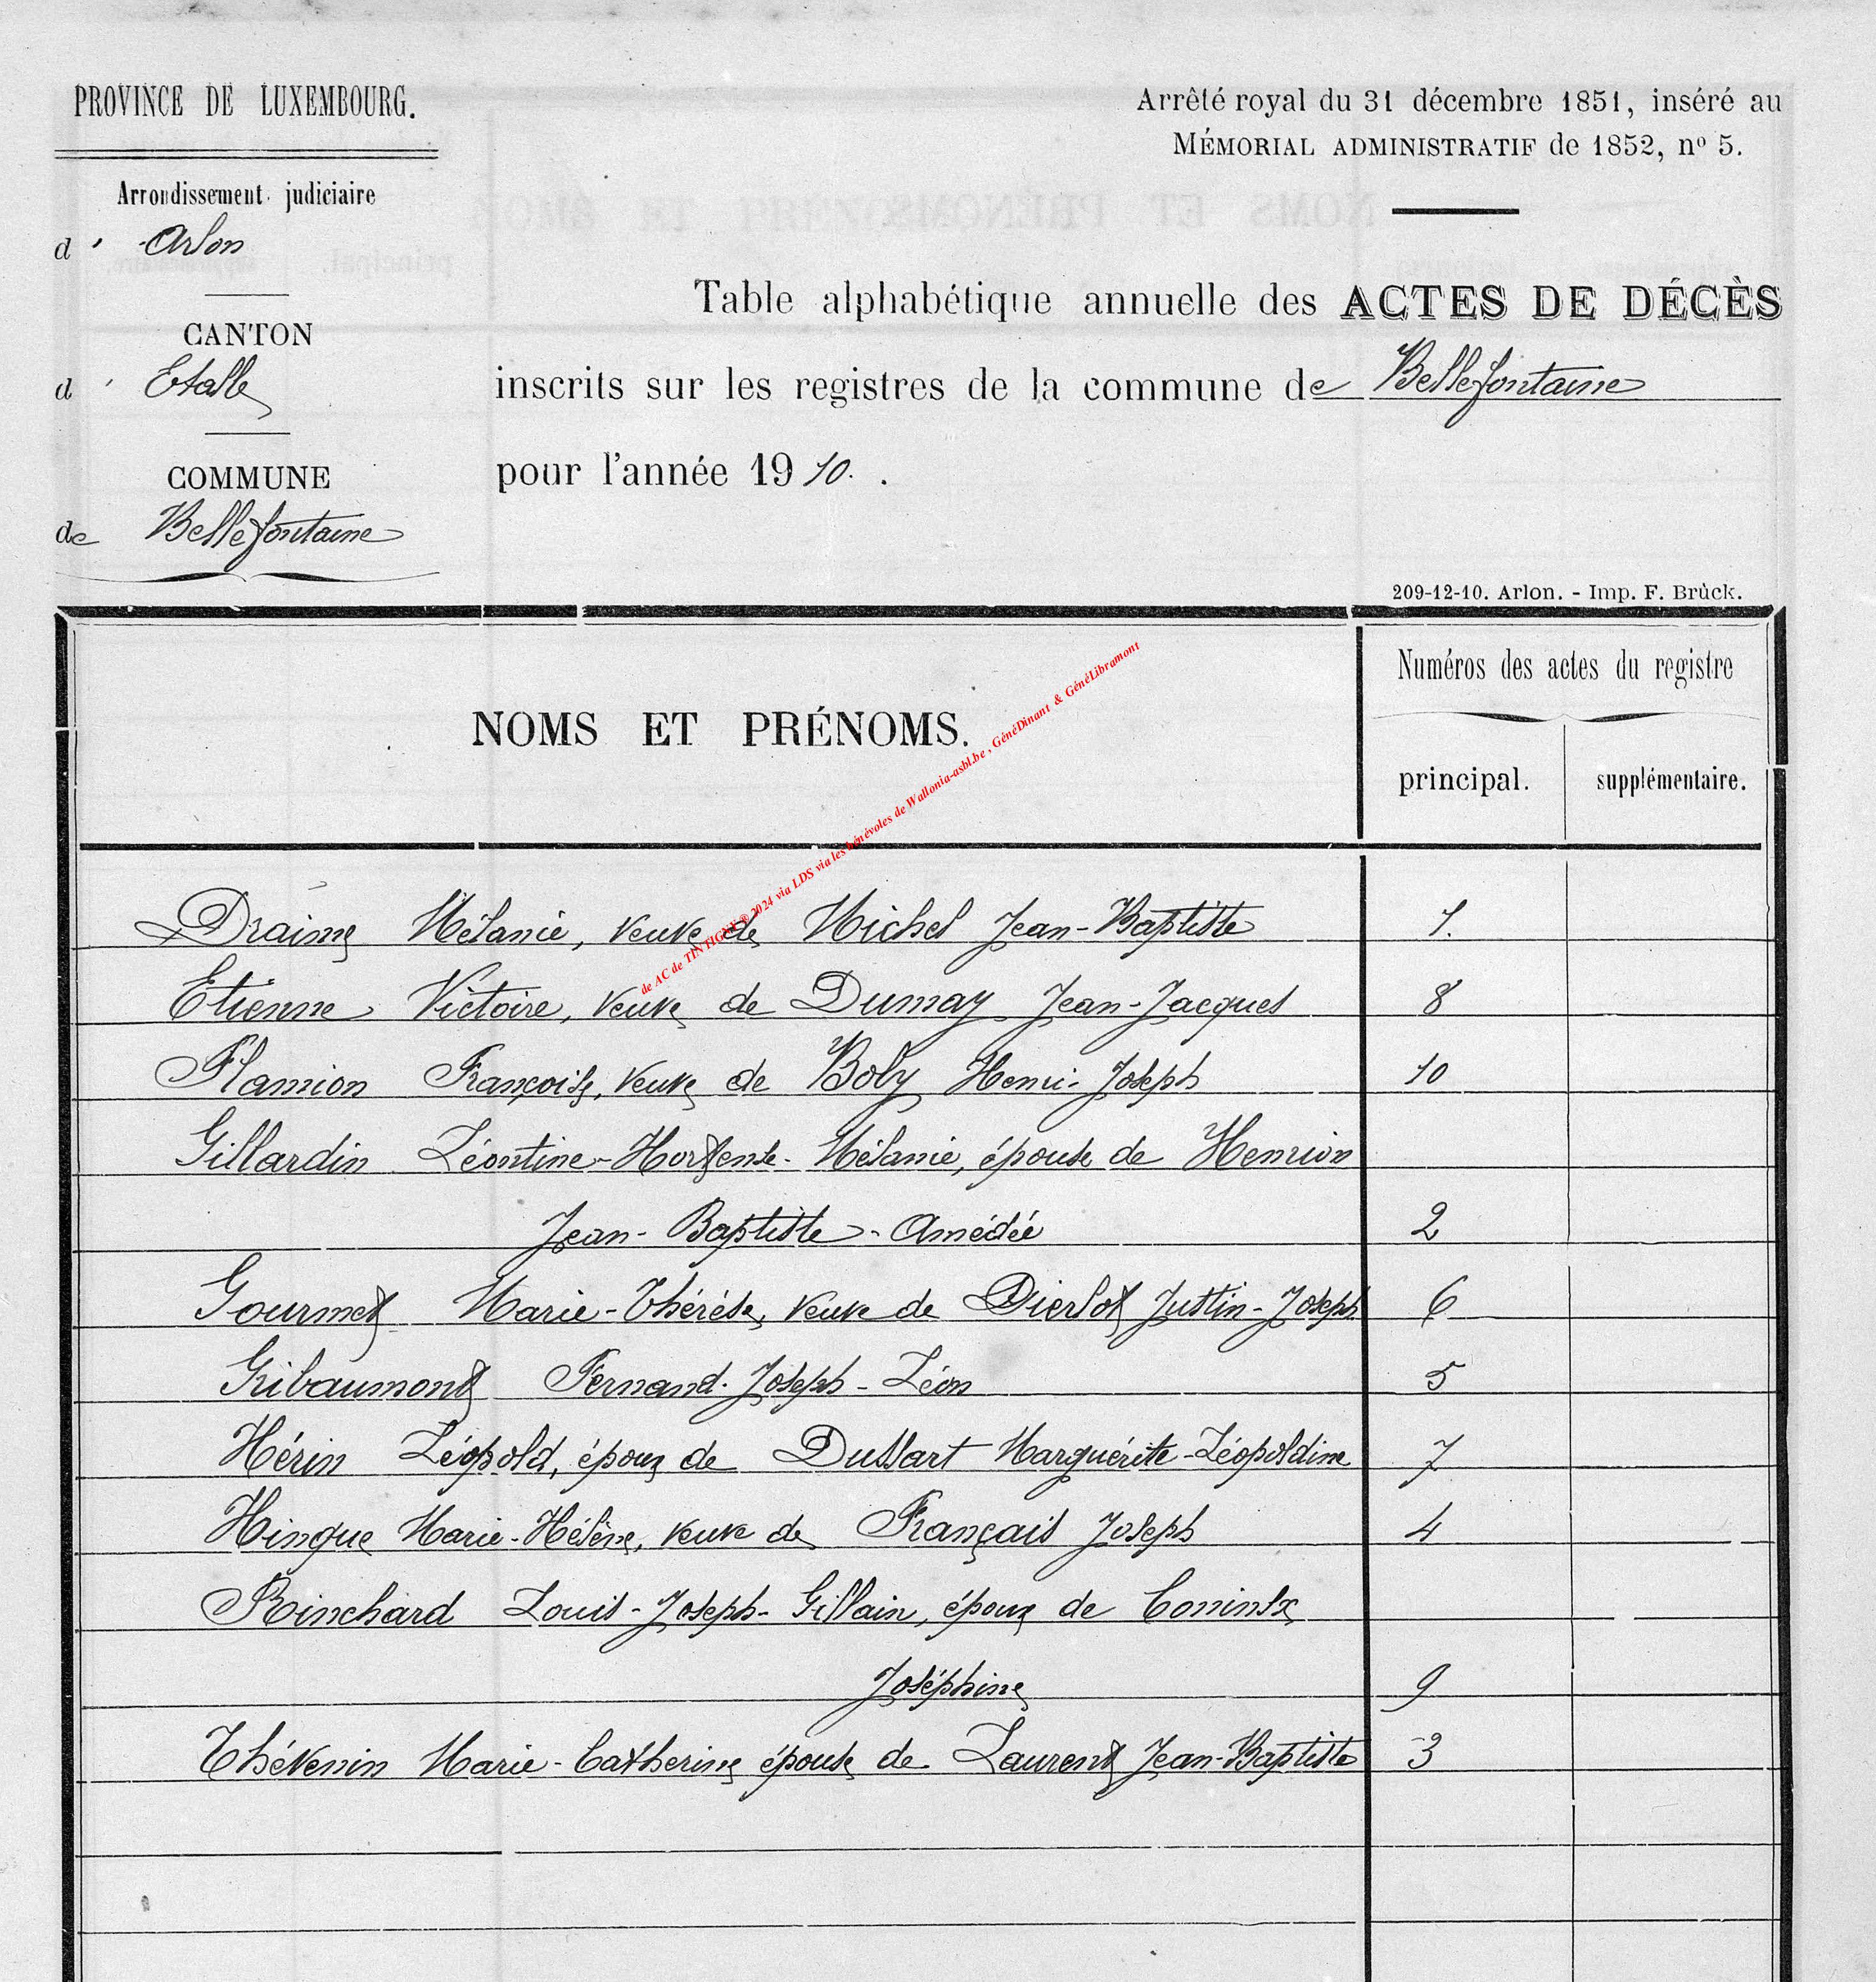 PROVINCE DE LUXEMBOURG.
Arrêté royal du 31 décembre 1851, inséré au
MÉMORIAL ADMINISTRATIF de 1852, nº 5.
Arrondissement judiciaire
d' Arlon
CANTON
d' Etalle
COMMUNE
de Bellefontaine
Table alphabétique annuelle des ACTES DE DÉCÈS
inscrits sur les registres de la commune de Bellefontaine
pour l'année 1910. .
209-12-10. Arlon. - Imp. F. Brück.
NOMS ET PRÉNOMS.
Numéros des actes du registre
principal.
supplémentaire.
de AC de TINTIGNY® 2024 via LDS via les bénévoles de Wallonia-asbl.be , GénéDinant & GénéLibramont
Draime Mélanie, veuve de Michel Jean-Baptiste 1.
Etienne Victoire, veuve de Dumay Jean-Jacques 8
Flamion Françoise, veuve de Boly Henri-Joseph 10
Gillardin Léontine-Hortense-Mélanie, épouse de Henrion
Jean-Baptiste-Amédée 2
Gourmet Marie-Thérèse, veuve de Dierlot Justin-Joseph 6
Gribaumont Fernand-Joseph-Léon 5
Hérin Léopold, époux de Dussart Marguérite-Léopoldine 7
Hinque Marie-Hélène, veuve de Français Joseph 4
Rinchard Louis-Joseph-Gillain, époux de Coninx
Joséphine 9
Thévenin Marie-Catherine épouse de Laurent Jean-Baptiste 3